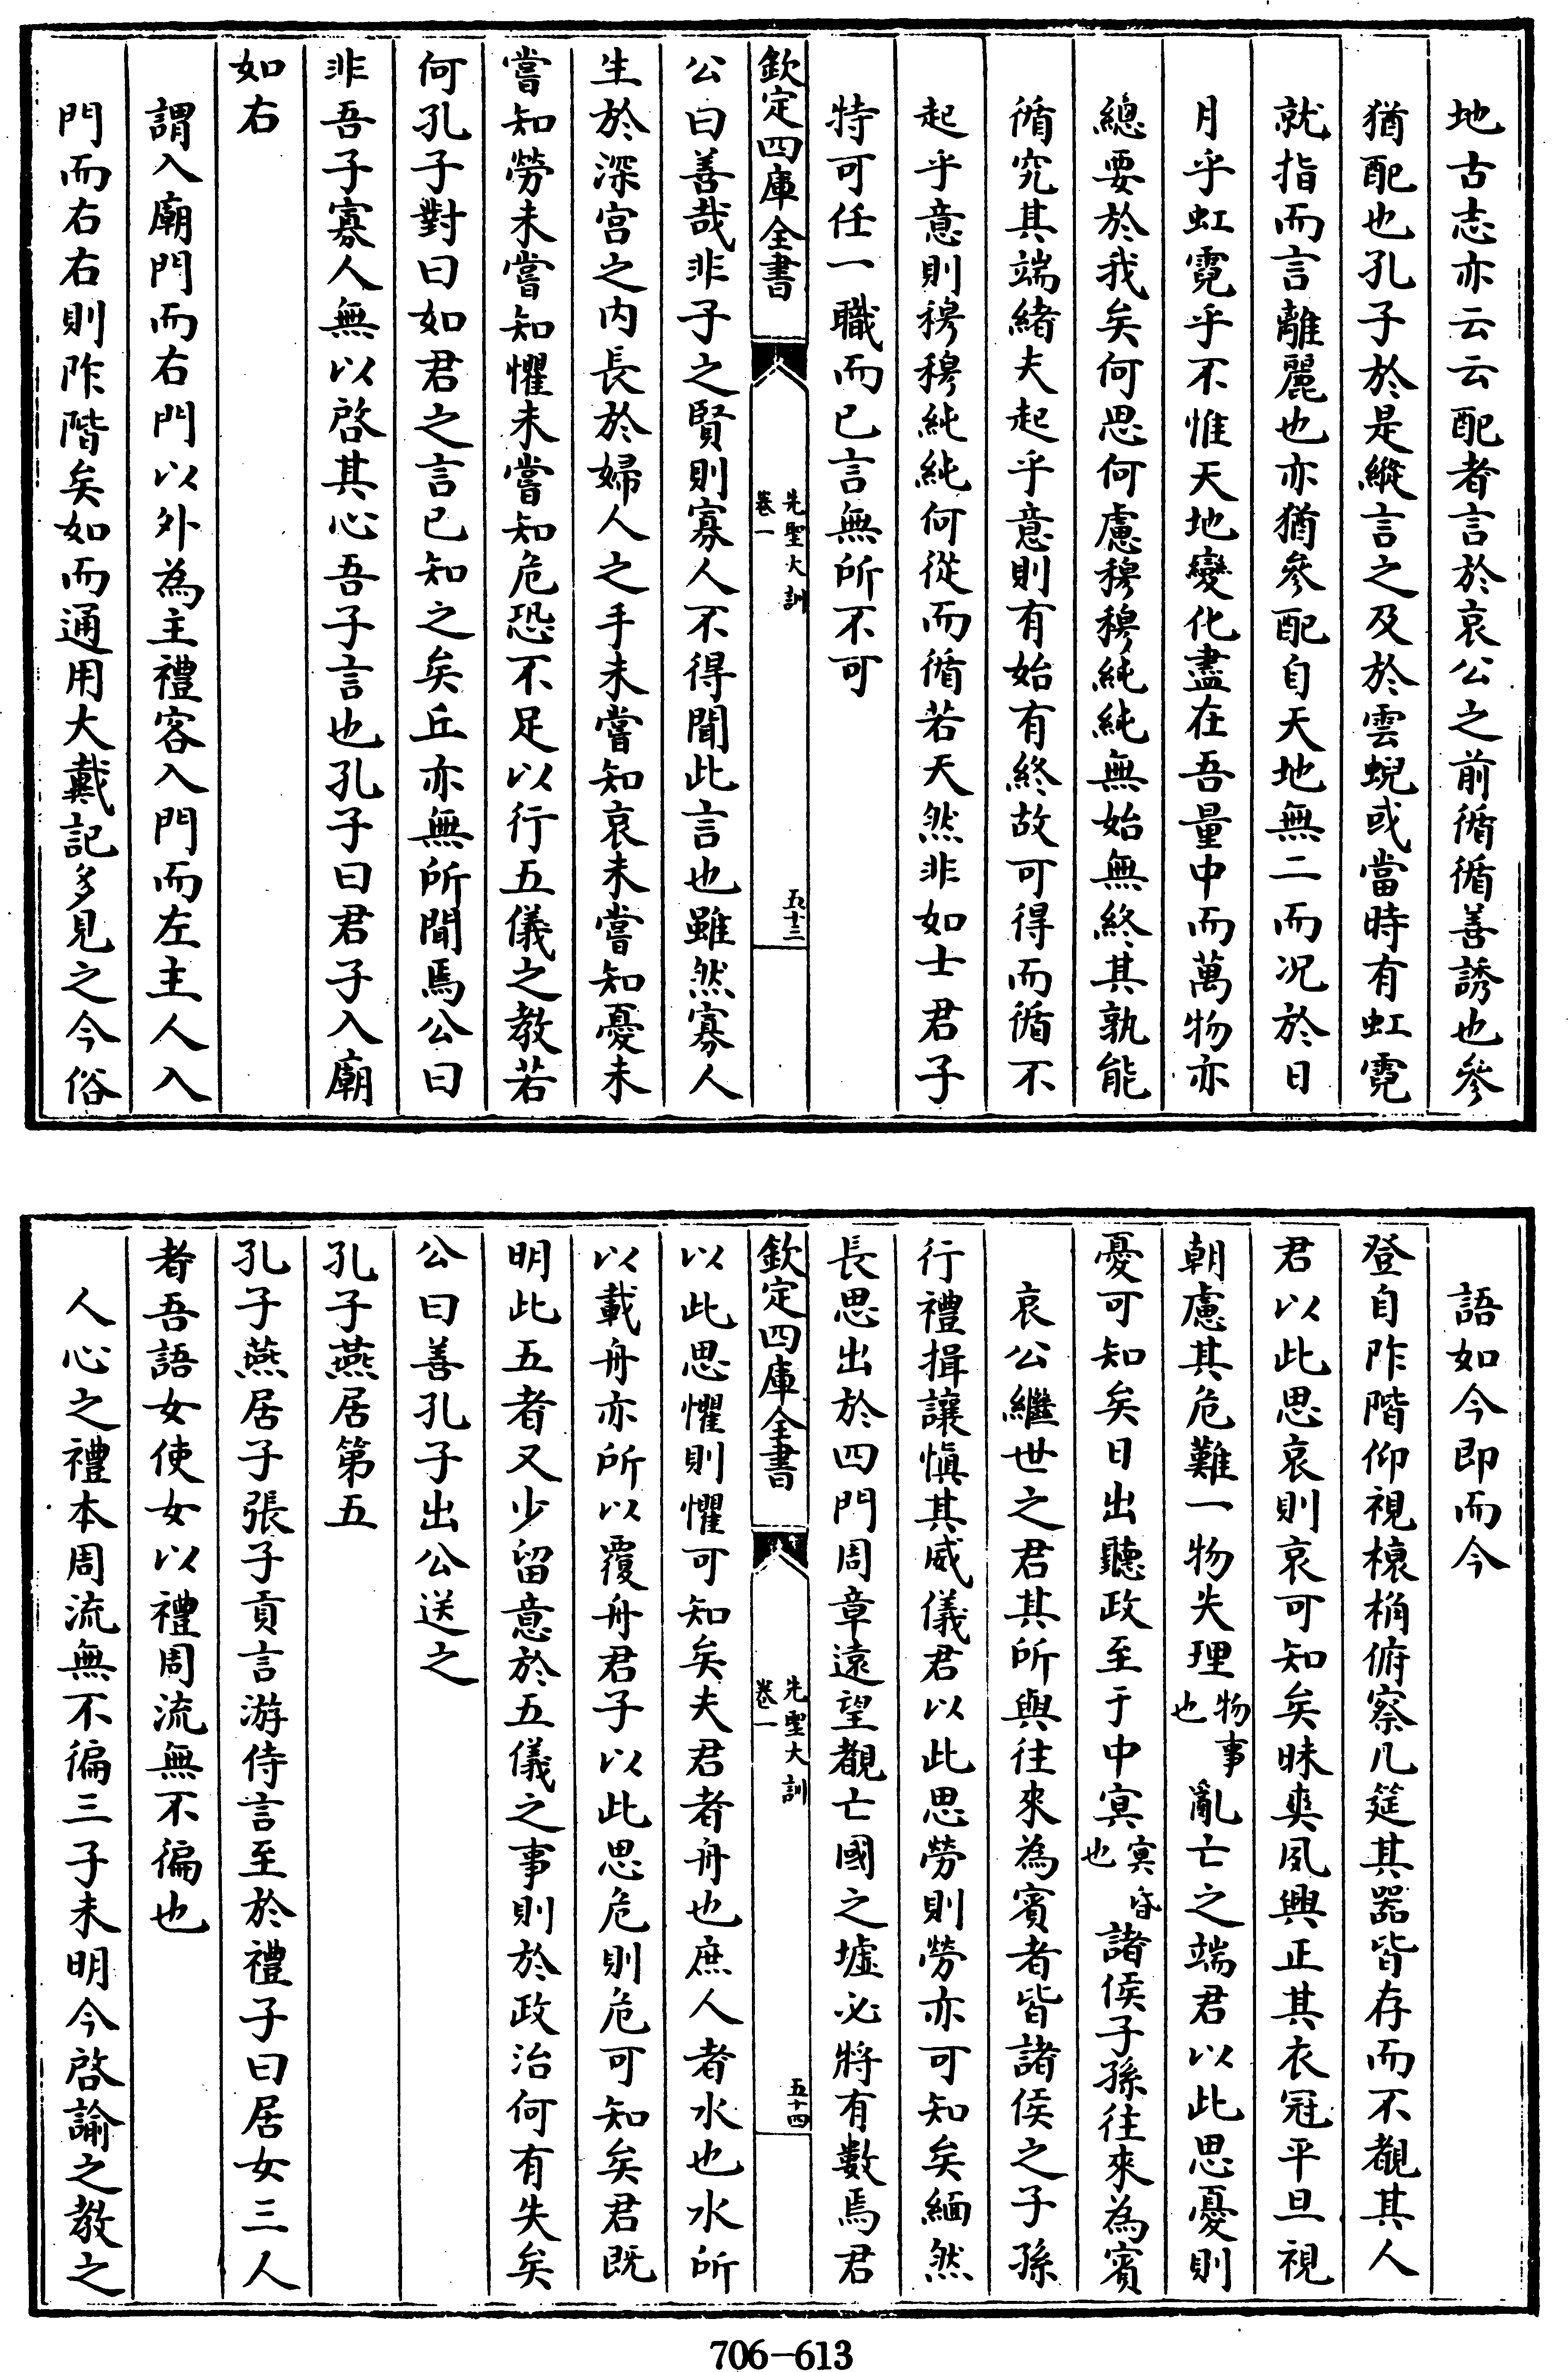 地古志亦云云配者言於哀公之前循循善誘也參
猶配也孔子於是縱言之及於雲蜺或當時有虹霓
就指而言離麗也亦猶參配自天地無二而况於日
月乎虹霓乎不惟天地變化盡在吾量中而萬物亦
總要於我矣何思何慮穆穆純純無始無終其孰能
循究其端緒夫起乎意則有始有終故可得而循不
起乎意則穆穆純純何從而循若天然非如士君子
特可任一職而已言無所不可
欽定四庫全書
先聖大訓
卷一
五十三
公曰善哉非子之賢則寡人不得聞此言也雖然寡人
生於深宫之内長於婦人之手未嘗知哀未嘗知憂未
嘗知勞未嘗知懼未嘗知危恐不足以行五儀之教若
何孔子對曰如君之言已知之矣丘亦無所聞焉公曰
非吾子寡人無以啓其心吾子言也孔子曰君子入廟
如右
謂入廟門而右門以外為主禮客入門而左主人入
門而右右則阼階矣如而通用大戴記多見之今俗
語如今即而今
登自阼階仰視榱桷俯察几筵其器皆存而不覩其人
君以此思哀則哀可知矣昧爽夙興正其衣冠平旦視
朝慮其危難一物失理物事也亂亡之端君以此思憂則
憂可知矣日出聽政至于中㝠㝠昏也諸侯子孫往來為賓
哀公繼世之君其所與往來為賓者皆諸侯之子孫
行禮揖讓慎其威儀君以此思勞則勞亦可知矣緬然
長思出於四門周章遠望覩亡國之墟必將有數焉君
欽定四庫全書
先聖大訓
卷一
五十四
以此思懼則懼可知矣夫君者舟也庶人者水也水所
以載舟亦所以覆舟君子以此思危則危可知矣君既
明此五者又少留意於五儀之事則於政治何有失矣
公曰善孔子出公送之
孔子燕居第五
孔子燕居子張子貢言游侍言至於禮子曰居女三人
者吾語女使女以禮周流無不徧也
人心之禮本周流無不徧三子未明今啓諭之教之
706-613